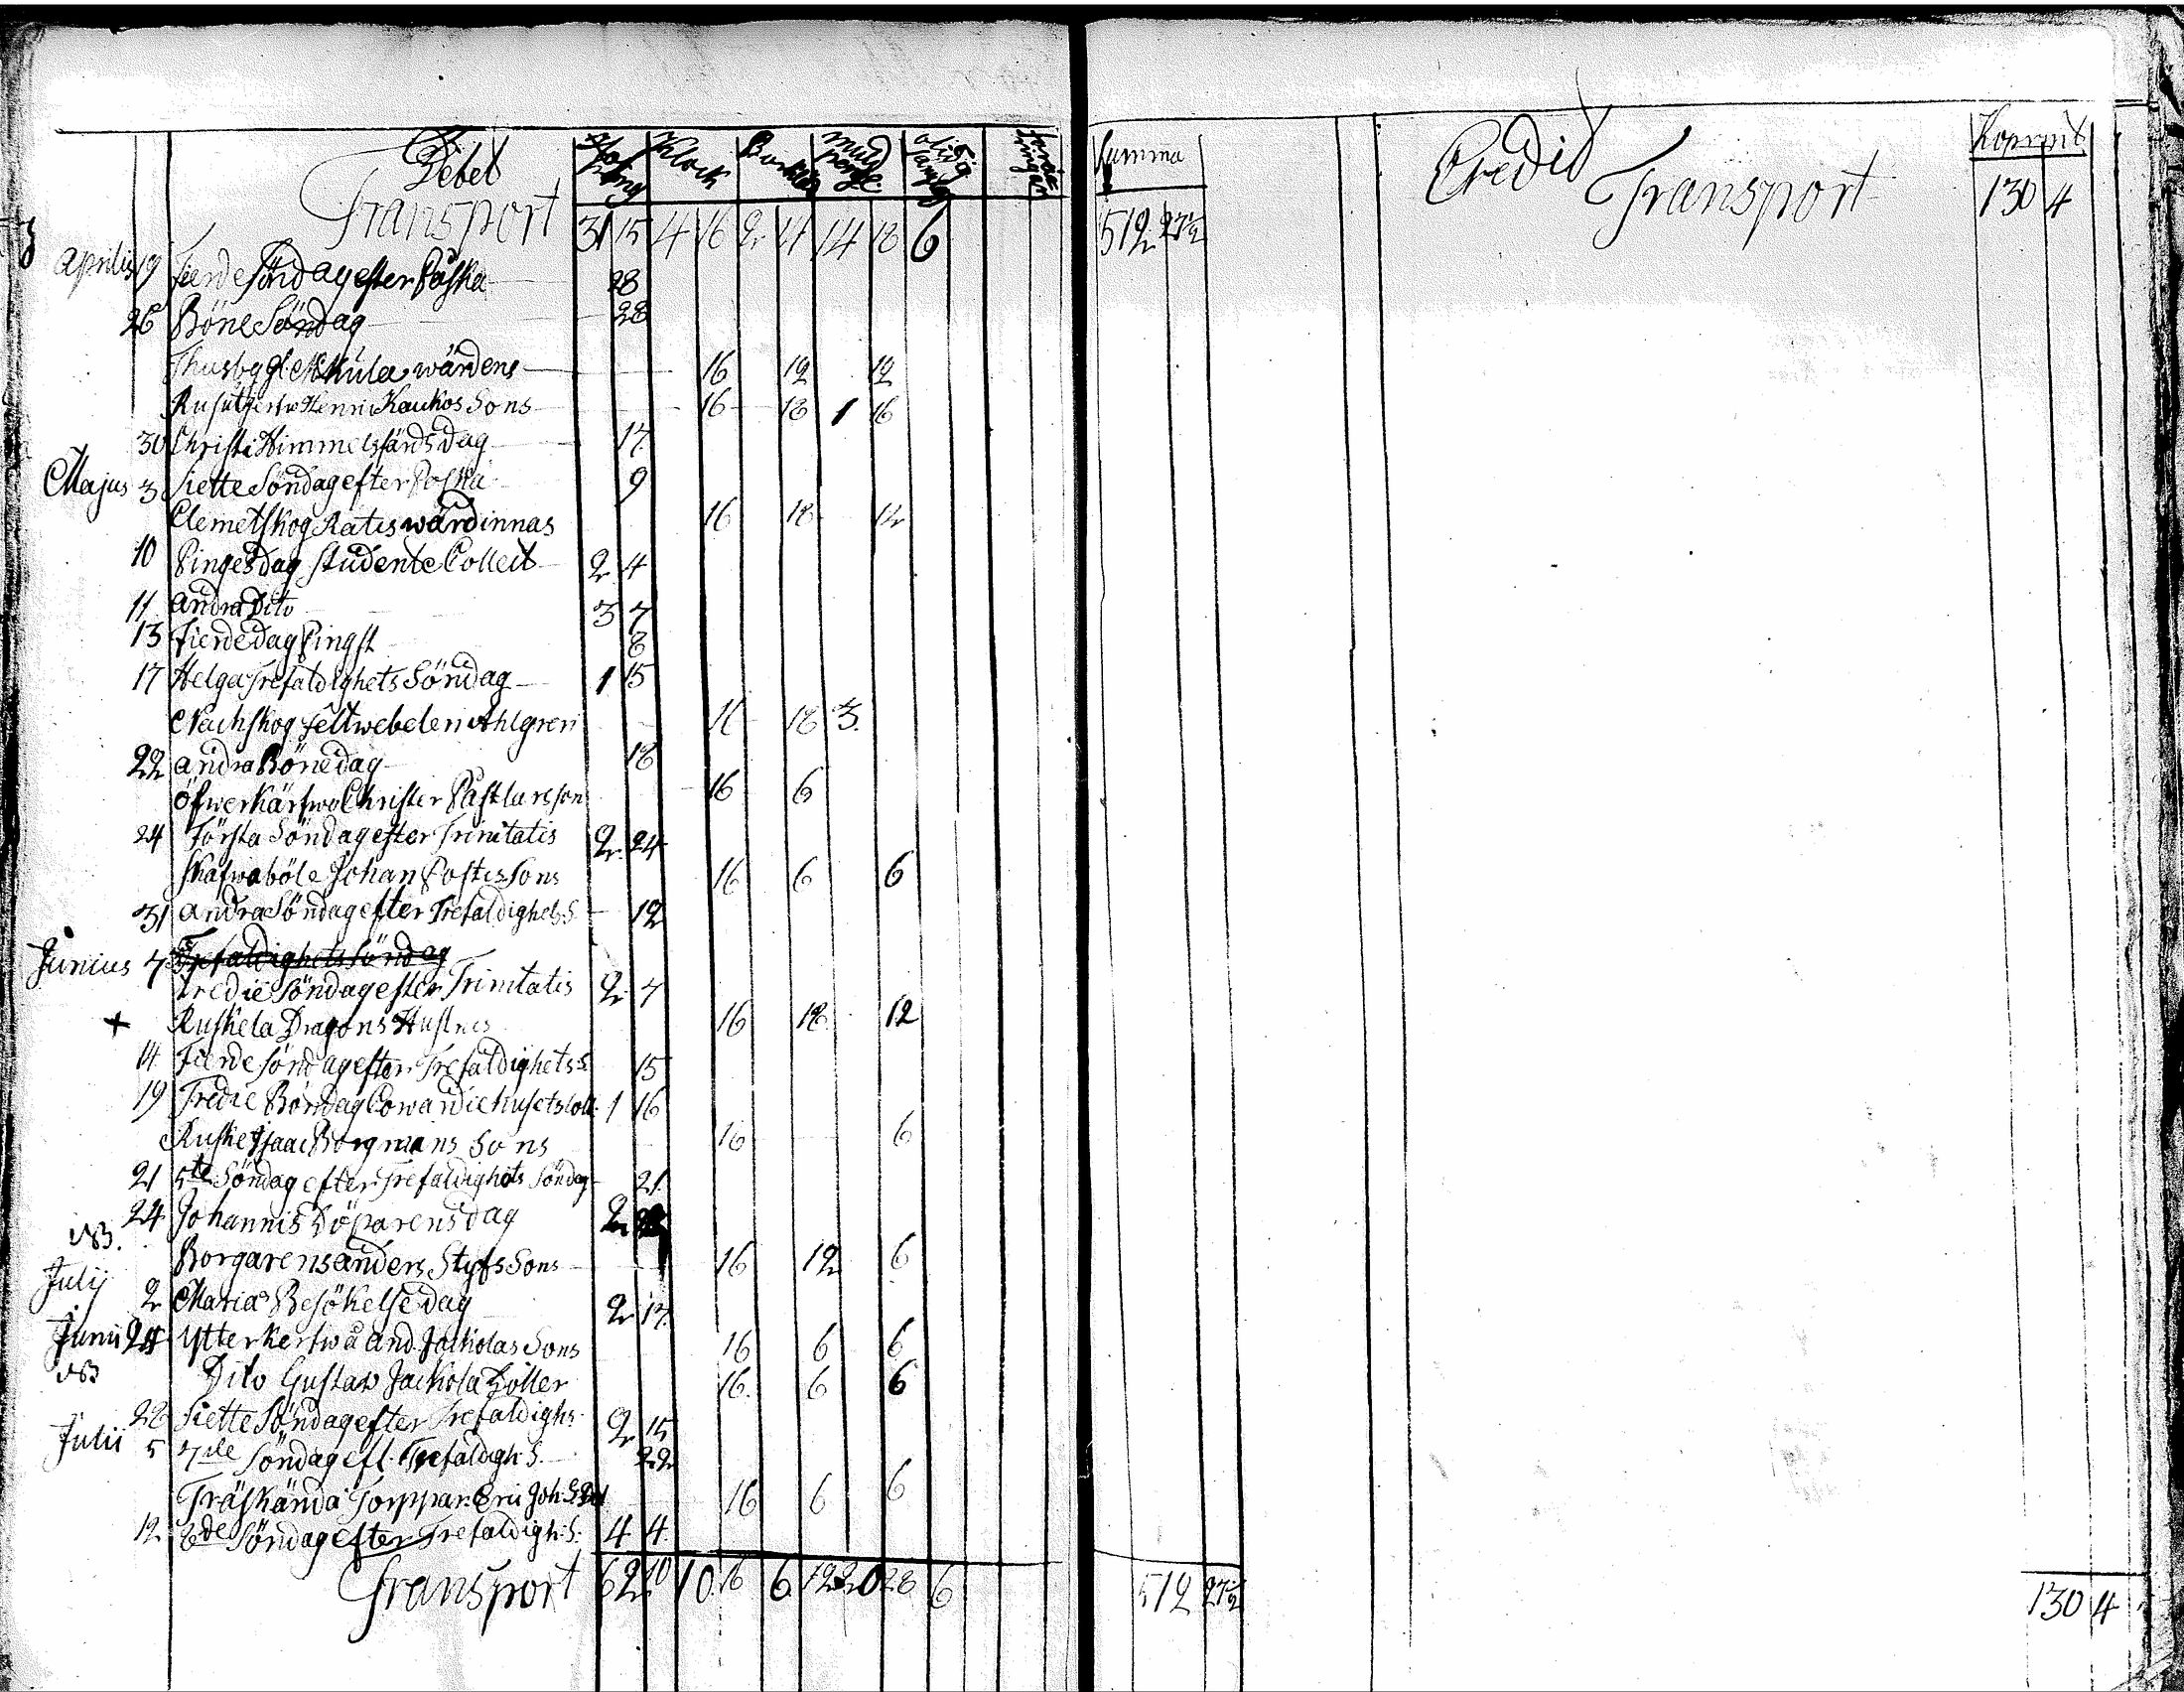 Debet Klock Summa Credit Koprmt
Transport 31 15 4 16 2 21 14 18 6 512 27½ Transport 130 4
Aprilis 19 Fierde Söndag efter Påska 28
26 Böne Söndag 28
Thusby gl. Skula wärdens 16 12 12
Henric Kaukos Sons 16 18 1 16
30 Christi Himmelsfärds dag 17
Majus 3 Siette Söndag efter Påska 9
Clemetskog Ratis wärdinnas 16 18 12
10 Pingesdag studente Collect 2 4
11 andra Dito 3 7
13 Fierde dag Pingst 8
17 Helga Trefaldighets Söndag 1 15
Nachskog feltwebelen Ahlgren 16 18 3
22 andra Bönedag 18
Öfwerkärfwo Christer Påstlarsson 16 6
24 Första Söndag efter Trinitatis 2 24
Skafwaböle Johan Postis Sons 16 6 6
31 andra Söndag efter Trefaldighets S. 12
Junius 7 Trefaldighets Söndag
Tredie Söndag efter Trinitatis 2 7
+ Ruskela Dragons Hustrus 16 18 12
14 Fierde Söndag efter Trefaldighets S. 15
19 Tredie Böndag Cowardie husets coll. 1 16
Ruske Isaac Borgmans Sons 16 6
21 5te Söndag efter Trefaldighets Söndag 21
24 Johannis Döparens dag 2
NB. Borgarens anders Styfs Sons 16 12 6
Julij 2 Mariæ Besökelse dag 2 17
Junii 24 Ytterkerfwå And. Jackolas Sons 16 6 6
NB Dito Gustav Jackola Dotter 16 6 6
28 Siette Söndag efter Trefaldighs. 2 15
Julii 5 7de Söndag eft. Trefaldigh. S. 22
Träskända Torppar. Eric Joh. S. 16 6 6
12 8de Söndag efter Trefaldigh. S. 4 4
Transport 62 20 10 16 6 12 20 28 6 512 27½ 130 4